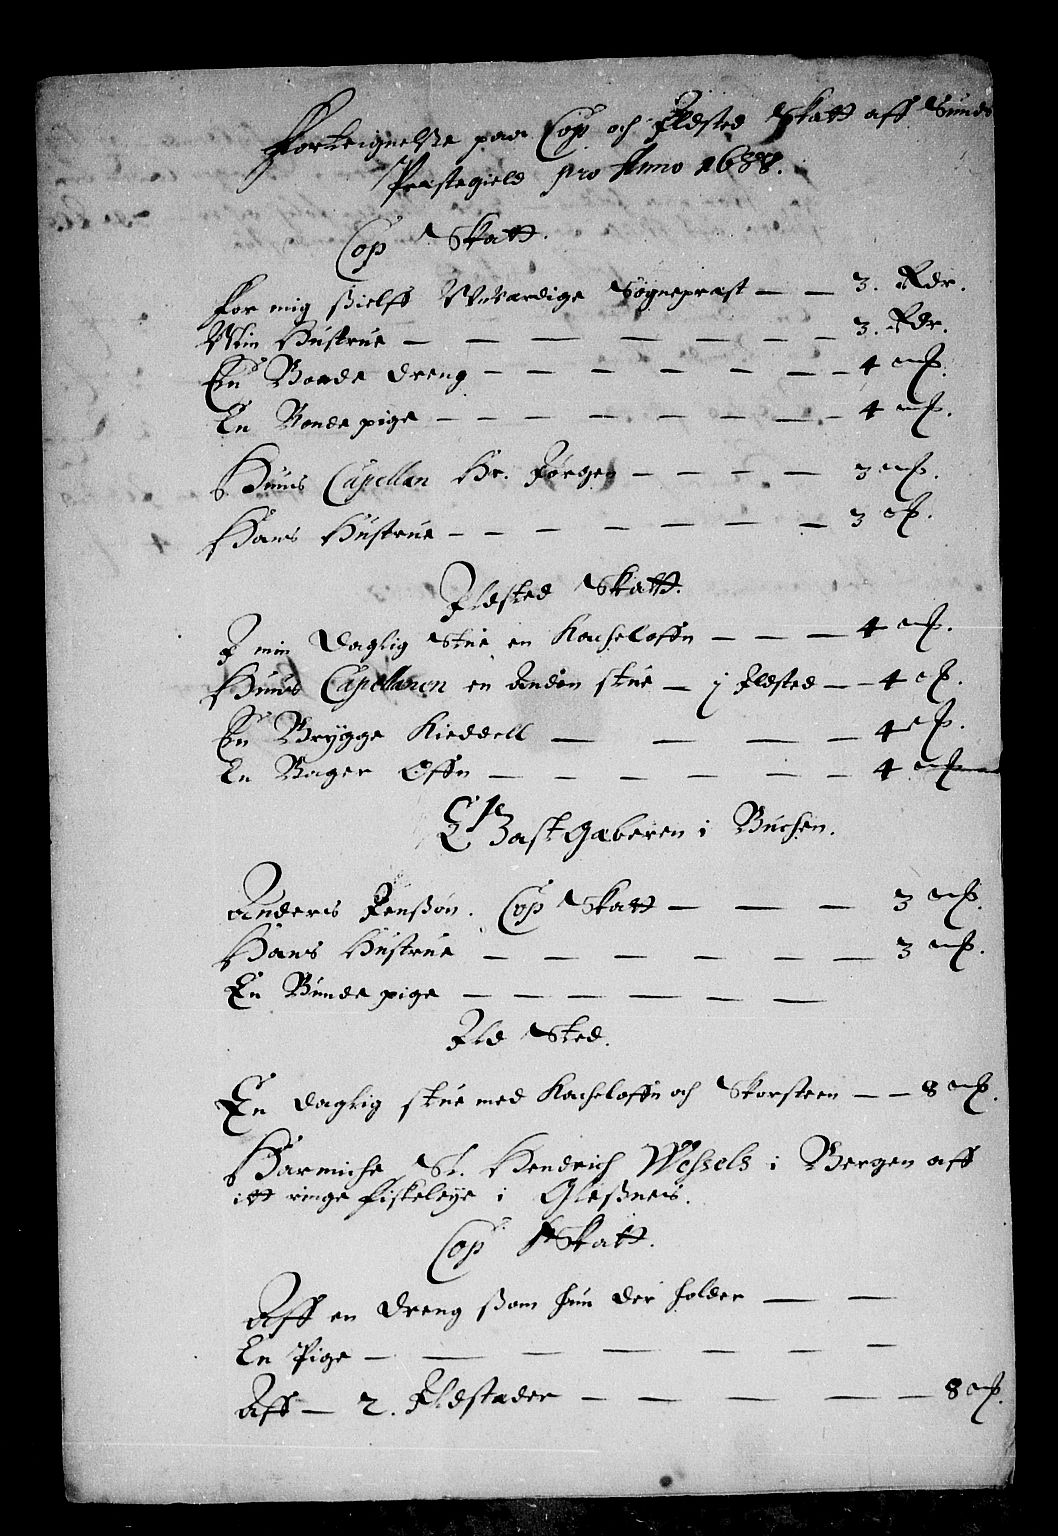 Forteignelße paa Cop och Ildsted Skatt aff Sunds
Præstegield pro Anno 1688.
Cop Skatt.
For mig sielff Uværdige Sognepræst — — 3. Rdr.
Min Hustrue — — — — — — — 3. Rdr.
En Bonde dreng — — — — — — — 4 mk.
En Bonde pige — — — — — — — 4 mk.
Huus Capellan Hr. Jørgen — — — — 3 mk.
Hans Hustrue — — — — — — — 3 mk.
Ildsted Skatt.
I min Daglig Stue en Kacheloffn — — — 4 mk.
Huus Capellanen en Anden stue — j Ildsted — — 4 mk.
En Brygge Kieddell — — — — 4 mk.
En Bager Offn — — — — — — — 4 mk
Gastgæberen i Buchen.
Anders Jenßøn. Cop Skatt — — — 3 mk.
Hans Hustrue — — — — — — 3 mk.
En Bonde pige — — — — — — —
Ild Sted.
En daglig stue med Kacheloffn och Skorsteen — — 8 mk.
Sl. Hendrich Weßels i Bergen aff
itt ringe fiskeleye i Gleßnes.
Cop Skatt.
Aff en dreng ßom hun der holder — —
En Pige — — — — — — —
Aff — 2. Ildstæder — — — — — 8 mk.